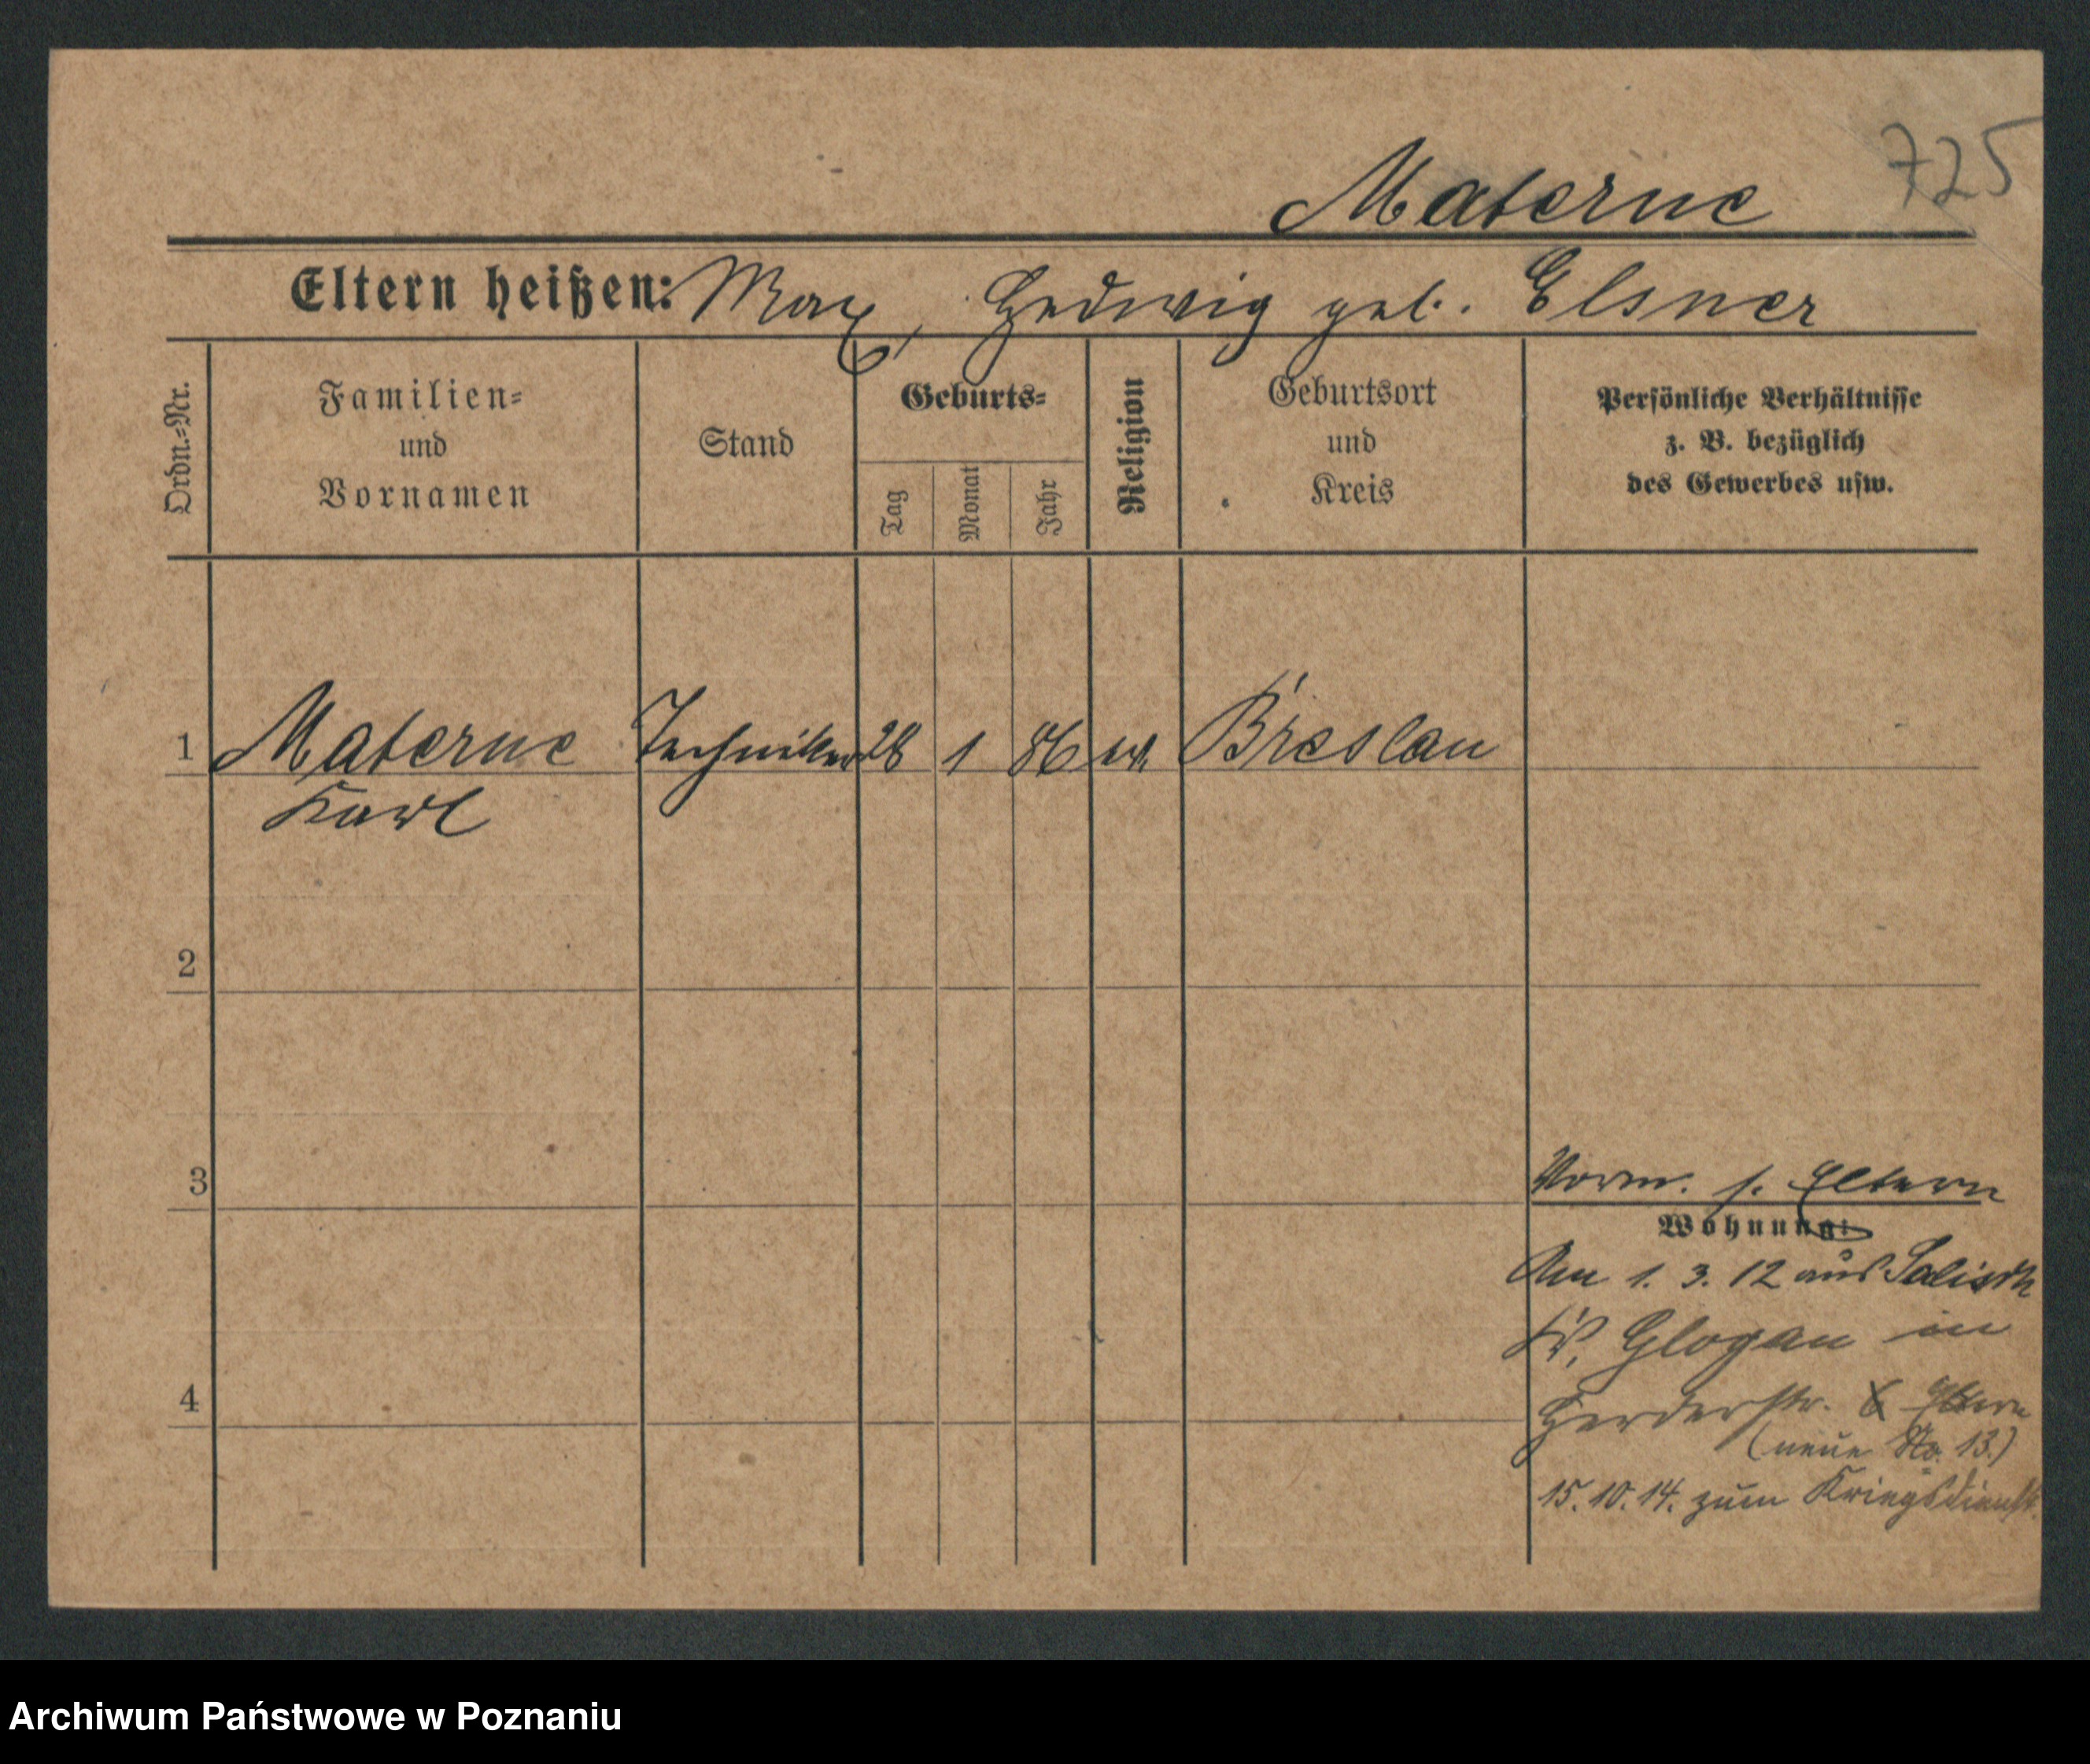 725
Materne
Eltern heißen: Max, Hedwig geb. Elsner
Ordn.-Nr.
Familien-
und
Vornamen
Stand
Geburts-
Tag
Monat
Jahr
Religion
Geburtsort
und
Kreis
Persönliche Verhältnisse
z. B. bezüglich
des Gewerbes usw.
1 Materne Techniker 28 1 86 ev. Breslau
Karl
2
3
Vorm. s. Eltern
Wohnung:
Am 1. 3. 12 aus Salisch
Kr. Glogau in
Herderstr. Eltern
(neue No. 13.)
4
15. 10. 14. zum Kriegsdienst.
Archiwum Państwowe w Poznaniu